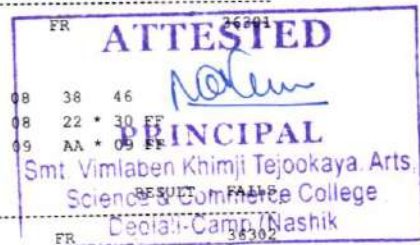 FR 36301
ATTESTED
08 38 46
08 22 * 30 FF
PRINCIPAL
09 AA * 09 FF
Smt. Vimlaben Khimji Tejookaya. Arts,
Science & Commerce College
RESULT FAILS
Deolali-Camp /Nashik
FR 36302